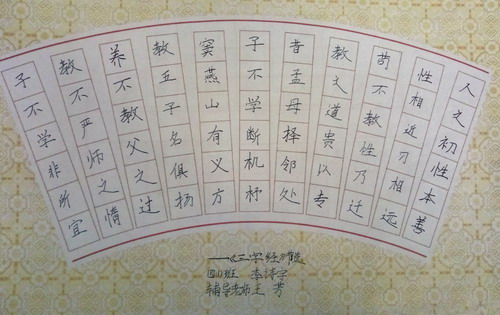 人之初性本善
性相近习相远
苟不教性乃迁
教之道贵以专
昔孟母择邻处
子不学断机杼
窦燕山有义方
教五子名俱扬
养不教父之过
教不严师之情
子不学非所宜
——《三字经》节选
四(1)班 李
辅导老师王芳